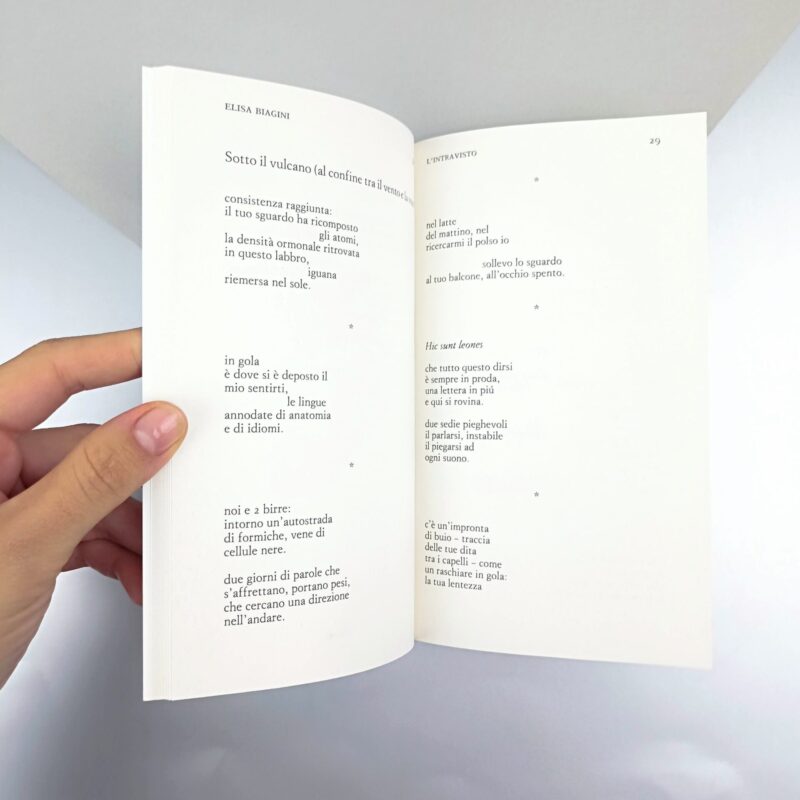 ELISA BIAGINI
Sotto il vulcano (al confine tra il vento e
consistenza raggiunta:
il tuo sguardo ha ricomposto
gli atomi,
la densità ormonale ritrovata
in questo labbro,
iguana
riemersa nel sole.
*
in gola
è dove si è deposto il
mio sentirti,
le lingue
annodate di anatomia
e di idiomi.
*
noi e 2 birre:
intorno un'autostrada
di formiche, vene di
cellule nere.
due giorni di parole che
s'affrettano, portano pesi,
che cercano una direzione
nell'andare.
L'INTRAVISTO
29
*
nel latte
del mattino, nel
ricercarmi il polso io
sollevo lo sguardo
al tuo balcone, all'occhio spento.
*
Hic sunt leones
che tutto questo dirsi
è sempre in proda,
una lettera in piú
e qui si rovina.
due sedie pieghevoli
il parlarsi, instabile
il piegarsi ad
ogni suono.
*
c'è un'impronta
di buio – traccia
delle tue dita
tra i capelli – come
un raschiare in gola:
la tua lentezza